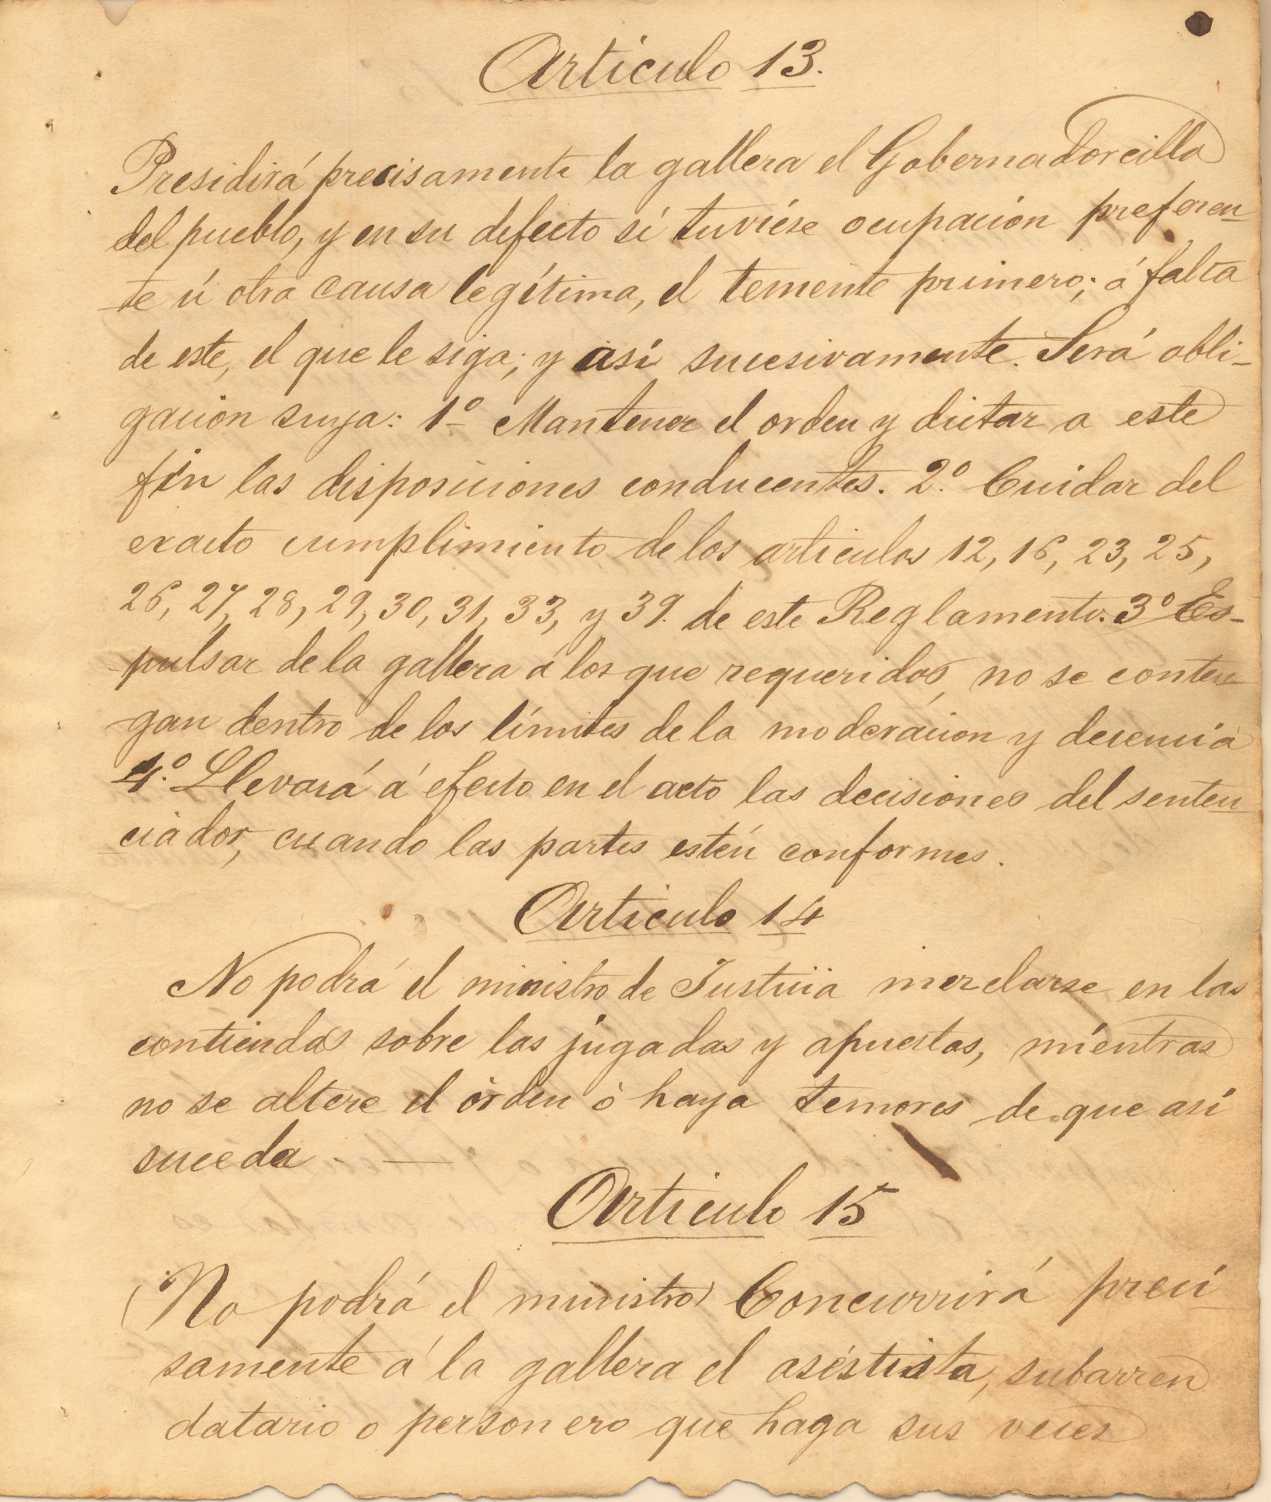 Articulo 13.
Presidirá precisamente la gallera el Gobernadorcillo
del pueblo, y en su defecto si tuviése ocupacion preferen
te ú otra causa legítima, el teniente primero; á falta
de este, el que le siga; y así sucesivamente. Será obli-
gacion suya: 1º Mantener el orden y dictar a este
fin las disposiciones conducentes. 2º Cuidar del
exacto cumplimiento de los articulos 12, 16, 23, 25,
26, 27, 28, 29, 30, 31, 33, y 39. de este Reglamento. 3º Es-
pulsar de la gallera á los que requeridos, no se conten
gan dentro de los límites de la moderacion y decencia
4º Llevará á efecto en el acto las decisiones del senten
ciador, cuando las partes estén conformes.
Articulo 14
No podrá el ministro de Justicia mezclarse en las
contiendas sobre las jugadas y apuestas, mientras
no se altere el órden ó haya temores de que asi
suceda. —
Articulo 15
(No podrá el ministro) Concurrirá preci
samente á la gallera el aséstista, subarren
datario o personero que haga sus veces